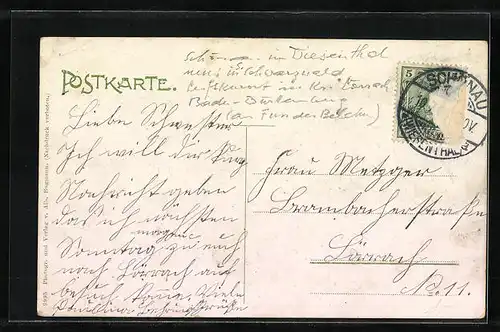 POSTKARTE.
Schönau im Wiesenthal
im Schwarzwald
Luftkurort im Kr. Lörrach
Baden-Württemberg
(am Fuß des Belchen)
5
SCHÖNAU
(WIESENTHAL)
Liebe Schwester
Ich will dir kurz
Nachricht geben
das ich nächsten
Sonntag morgen zu euch
nach Lörrach auf
besuch komme. Viele
Frau Metzger
Brombacherstraße
Lörrach
N. 11.
2995 Photogr. und Verlag v. Alb. Bogmann. (Nachdruck verboten.)